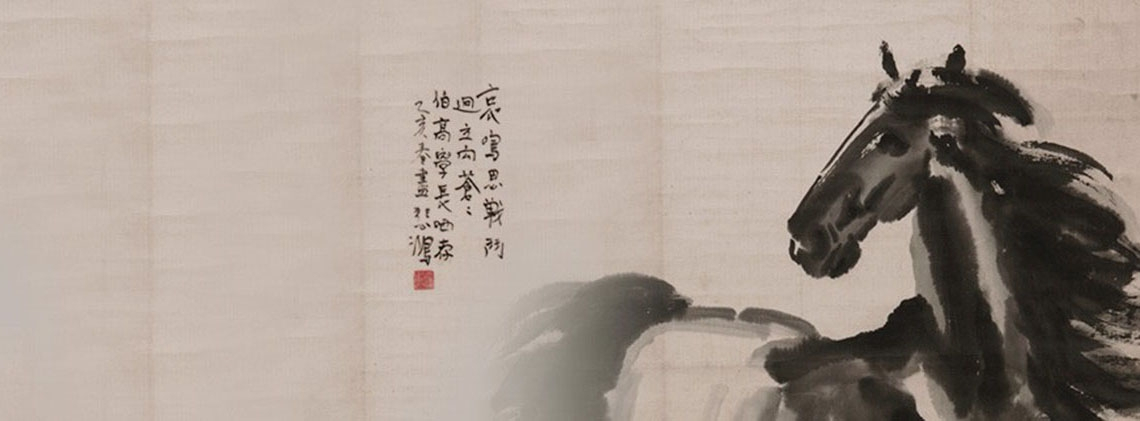 哀鳴思戰鬥
迥立向蒼〻
伯高學長哂存
乙亥春畫悲鴻